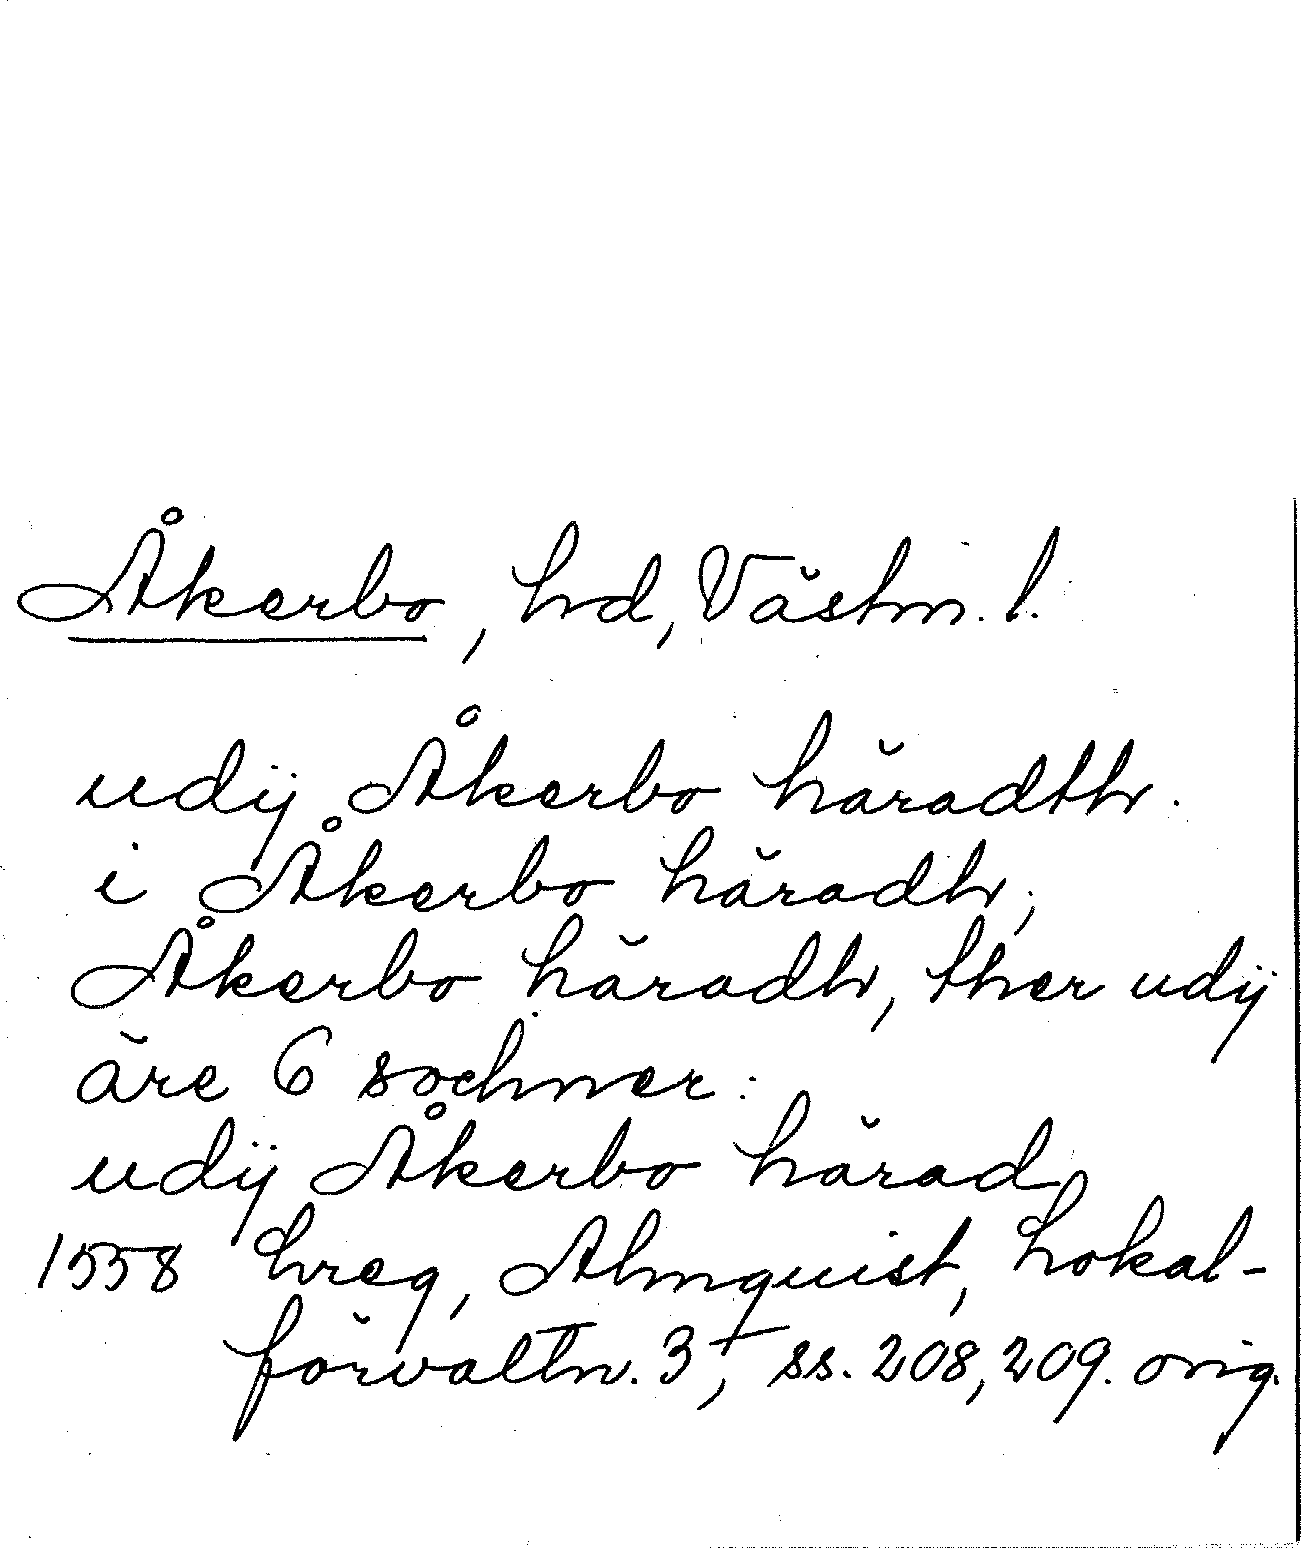 Åkerbo, hd, Västm. l.
udij Åkerbo häradth.
i Åkerbo häradh;
Åkerbo häradh, ther udij
äre 6 sochner:
udij Åkerbo härad
1558 hreg, Almquist, Lokal-
förvaltn. 3, ss. 208, 209. orig.